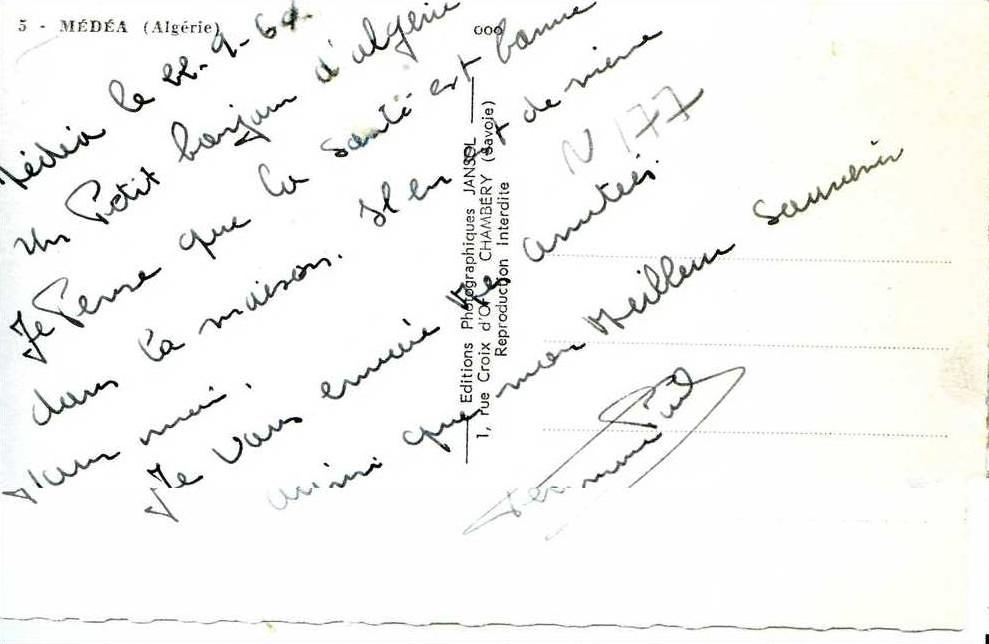 5 - MÉDÉA (Algérie)
ooo
Médéa le 22-9-61
Un Petit bonjour d'algérie
Je Pense que la santé est bonne
dans la maison. Il en est de même
Pour moi.
Je vous envoie mes amitiés
ainsi que mon Meilleur Souvenir
N 177
Editions Photographiques JANSOL
1, rue Croix d'Or CHAMBÉRY (Savoie)
Reproduction Interdite